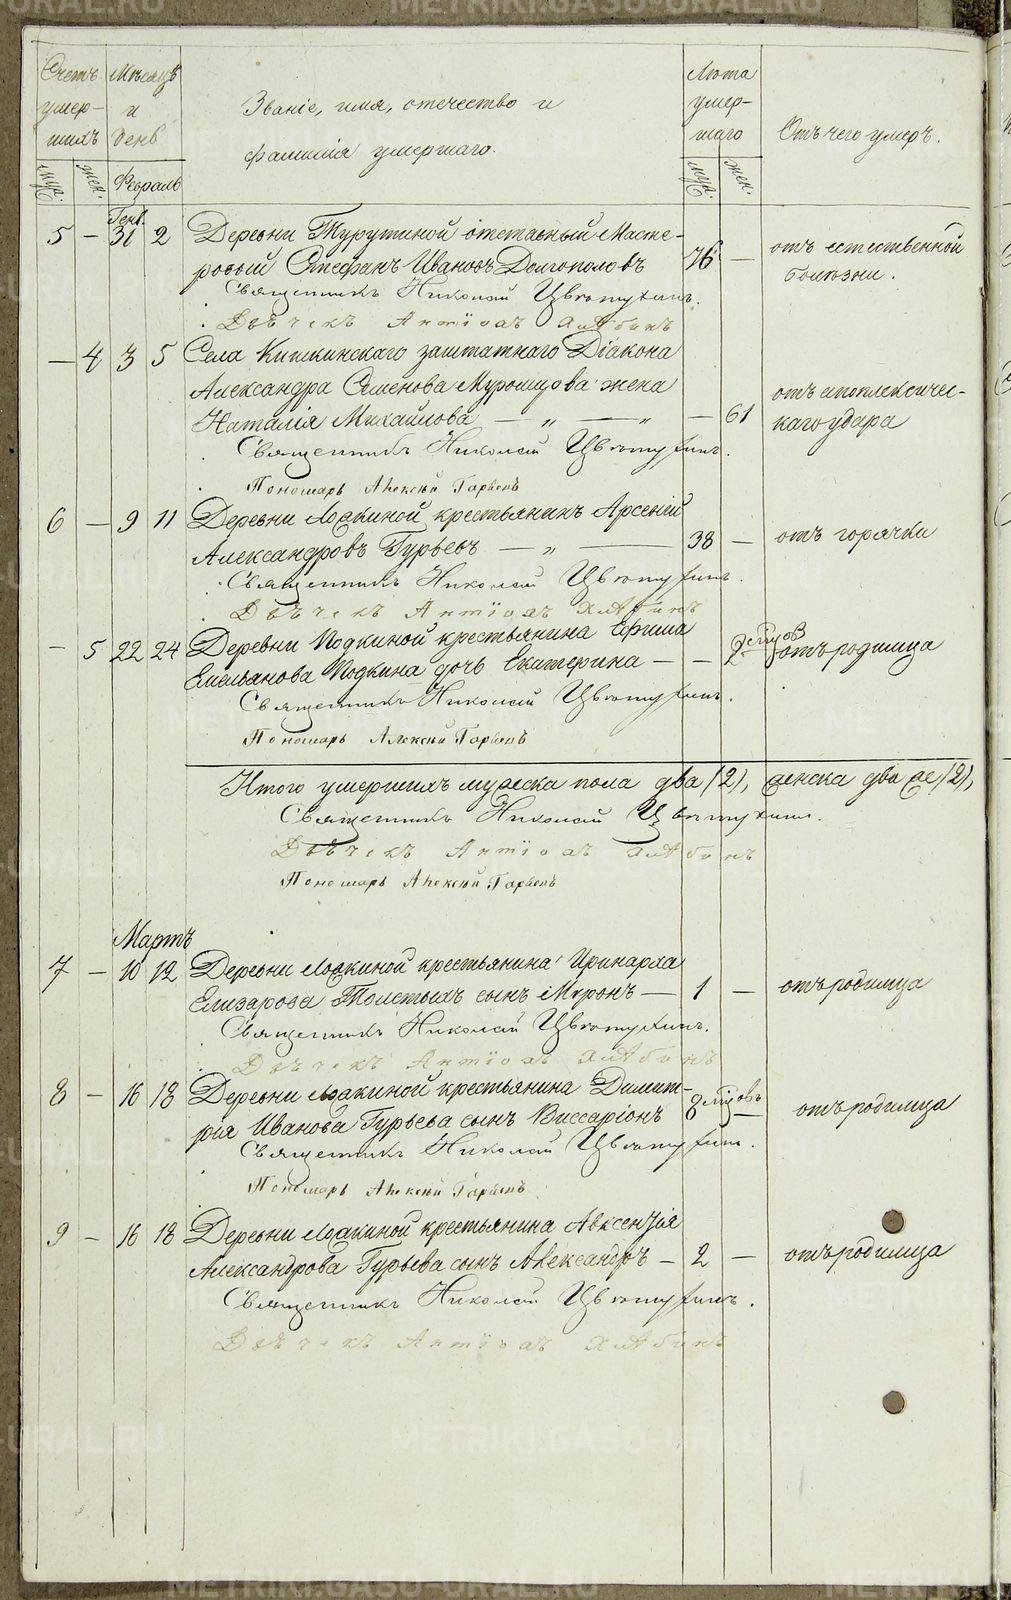 Счетъ умер-шихъ
Мѣсяцъ и день
Званіе, имя, отечество и
фамилія умершаго.
Лѣта умер-шаго
Отъ чего умеръ.
муж. жен. Февраль муж. жен.
Генв.
5 — 31 2 Деревни Турутиной отставный Масте-
ровой Стефанъ Ивановъ Долгополовъ 76 — отъ естественной
болѣзни.
Священникъ Николай Цвѣтухинъ.
Дьячекъ Антіохъ
— 4 3 5 Села Кишкинскаго заштатнаго Діакона
Александра Семенова Мурошцова жена
Наталія Михайлова — „ — „ — 61 отъ апоплексичес-
каго удара
Священникъ Николай Цвѣтухинъ.
Пономарь Алексѣй
6 — 9 11 Деревни крестьянинъ Арсеній
Александровъ Гурьевъ — „ — 38 — отъ горячки
Священникъ Николай Цвѣтухинъ.
Дьячекъ Антіохъ
— 5 22 24 Деревни крестьянина Ефима
Емельянова дочь Екатерина — — 2 мѣсяцовъ отъ родимца
Священникъ Николай Цвѣтухинъ.
Пономарь Алексѣй
Итого умершихъ мужеска пола два (2), женска два же (2),
Священникъ Николай Цвѣтухинъ.
Дьячекъ Антіохъ
Пономарь Алексѣй
Мартъ
7 — 10 12 Деревни крестьянина Иринарха
Елизарова Толстыхъ сынъ Миронъ — 1 — отъ родимца
Священникъ Николай Цвѣтухинъ.
Дьячекъ Антіохъ
8 — 16 18 Деревни крестьянина Димит-
рія Иванова Гурьева сынъ Виссаріонъ 8 мѣсяцовъ — отъ родимца
Священникъ Николай Цвѣтухинъ.
Пономарь Алексѣй
9 — 16 18 Деревни крестьянина Авксентія
Александрова Гурьева сынъ Александръ — 2 — отъ родимца
Священникъ Николай Цвѣтухинъ.
Дьячекъ Антіохъ
METRIKI.GASO-URAL.RU